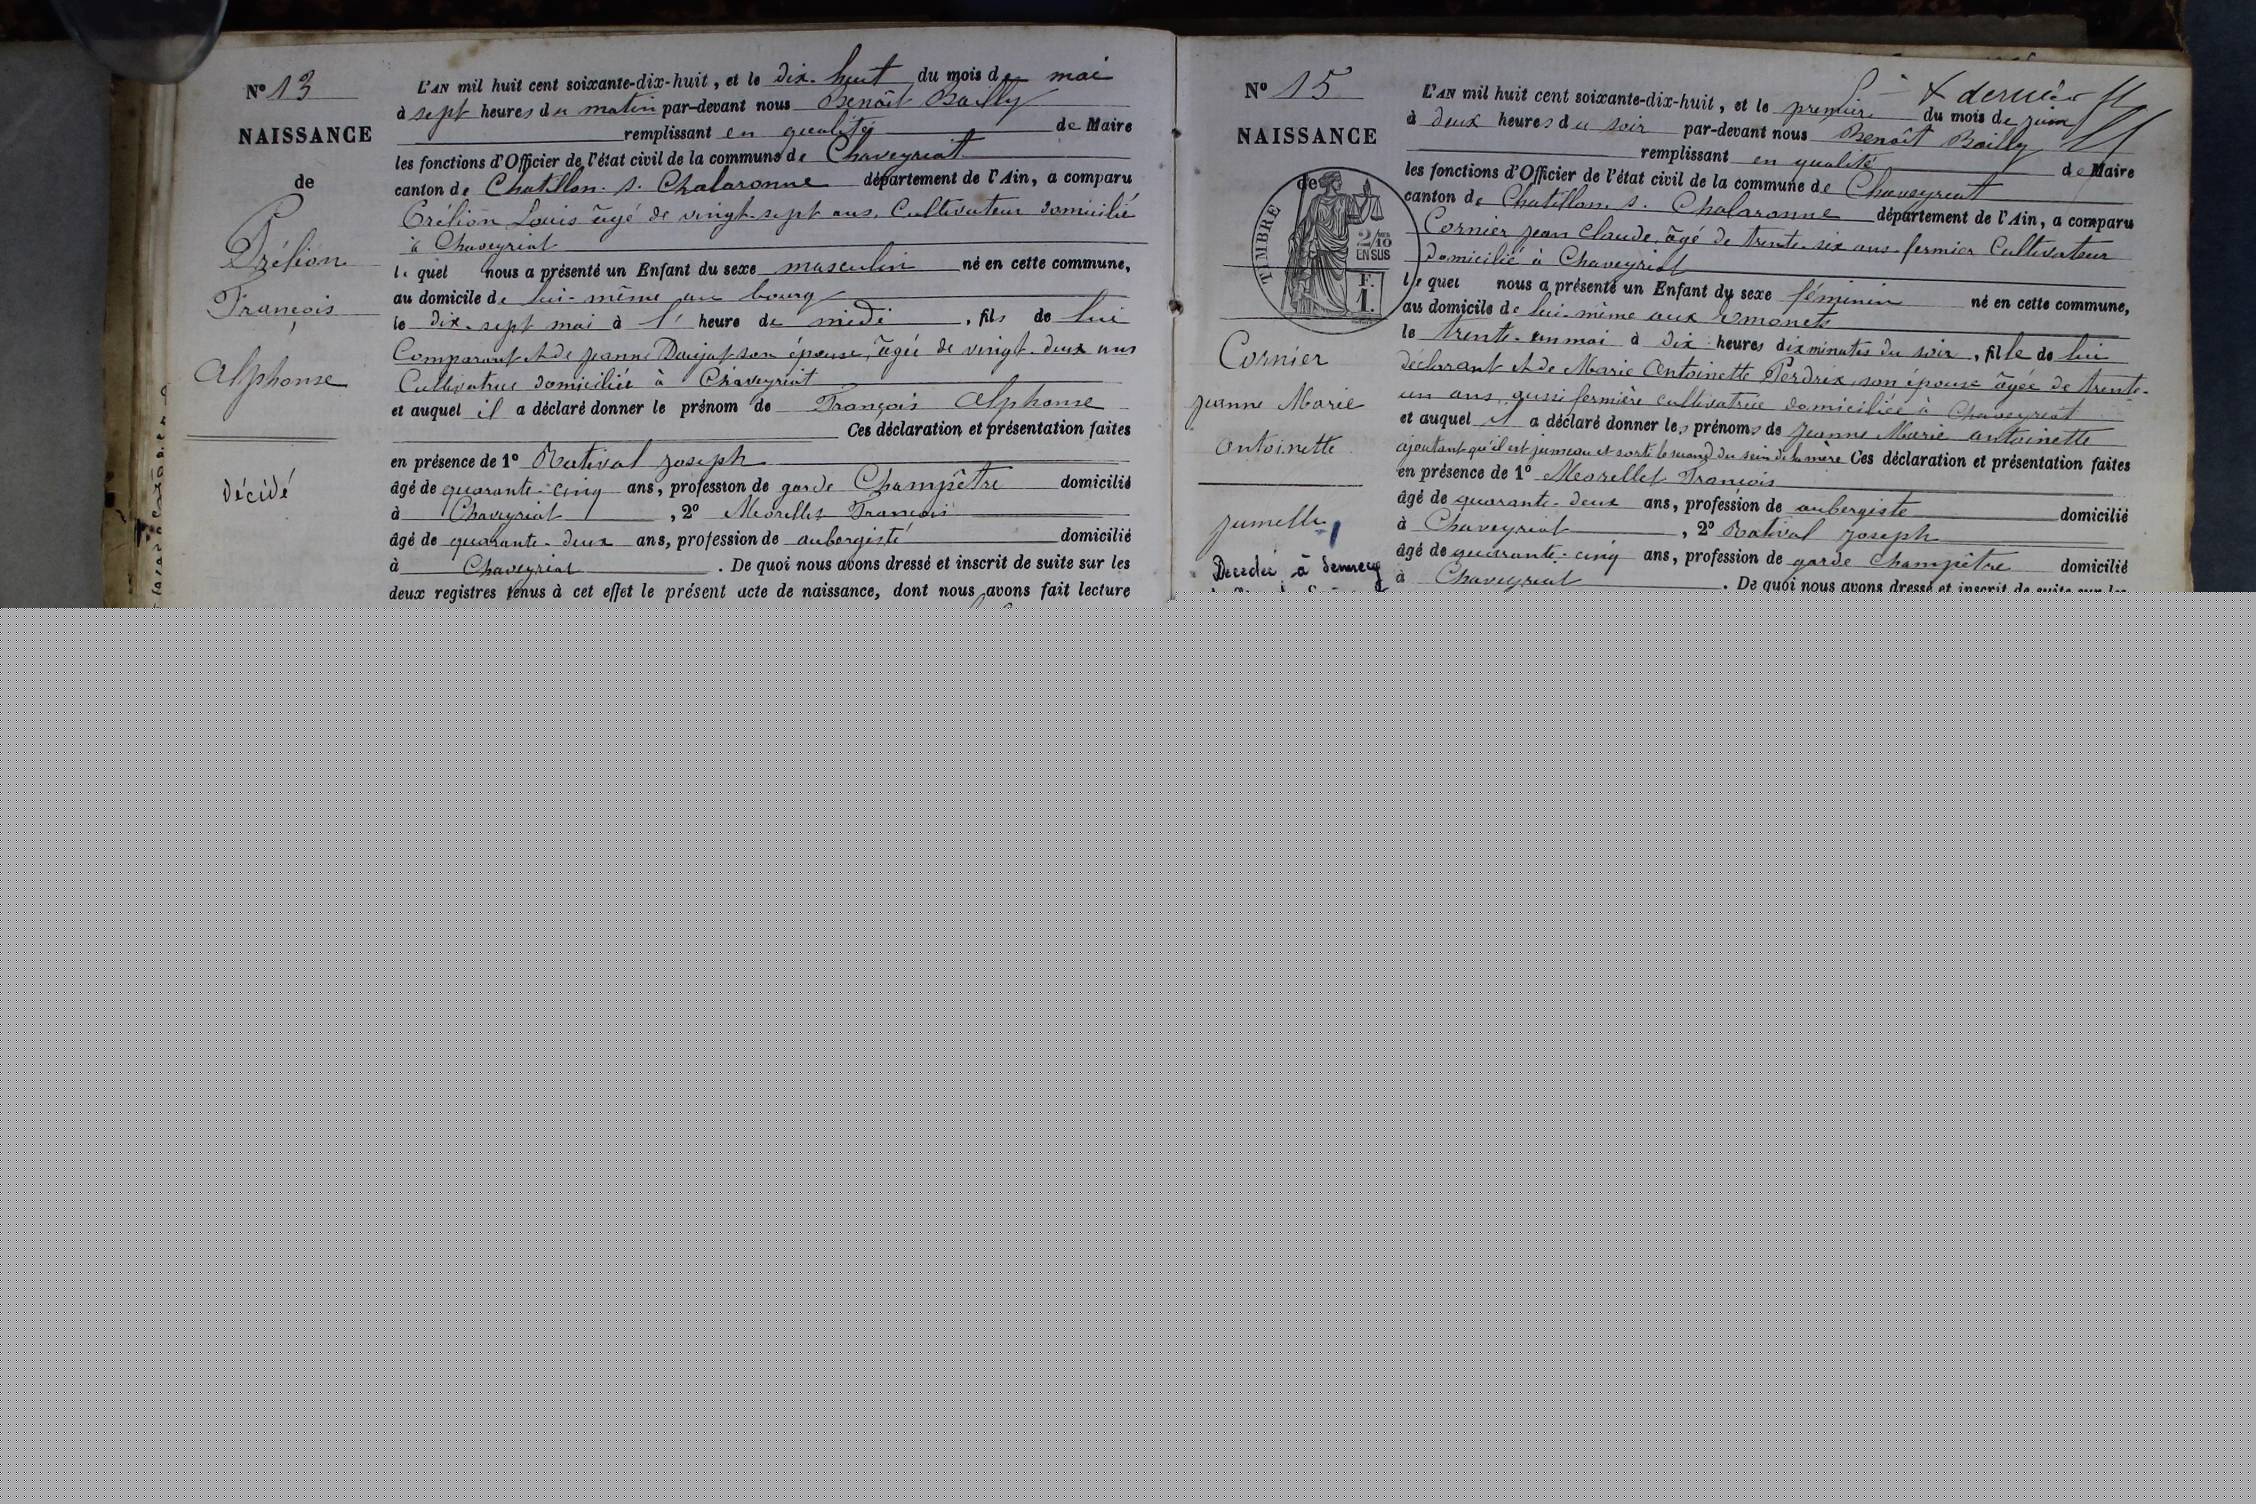 N° 13
NAISSANCE
de
Prélion
François
Alphonse
décédé
L'AN mil huit cent soixante-dix-huit, et le dix-huit du mois de mai
à sept heures du matin par-devant nous Benoît Bailly
remplissant en qualité de Maire
les fonctions d'Officier de l'état civil de la commune de Chaveyriat
canton de Chatillon s. Chalaronne département de l'Ain, a comparu
Prélion Louis âgé de vingt-sept ans, Cultivateur domicilié
à Chaveyriat
le quel nous a présenté un Enfant du sexe masculin né en cette commune,
au domicile de lui-même au bourg
le dix-sept mai à 1 heure de midi, fils de lui
Comparant et de Jeanne son épouse, âgée de vingt-deux ans
Cultivatrice domiciliée à Chaveyriat
et auquel il a déclaré donner le prénom de François Alphonse
Ces déclaration et présentation faites
en présence de 1° Rativel Joseph
âgé de quarante-cinq ans, profession de garde Champêtre domicilié
à Chaveyriat, 2° Morellet François
âgé de quarante-deux ans, profession de aubergiste domicilié
à Chaveyriat. De quoi nous avons dressé et inscrit de suite sur les
deux registres tenus à cet effet le présent acte de naissance, dont nous avons fait lecture
N° 15
NAISSANCE
de
TIMBRE
2/10
EN SUS
F.
1.
Cornier
Jeanne Marie
Antoinette
jumelle
Décédée à
& dernier
L'AN mil huit cent soixante-dix-huit, et le premier du mois de juin
à deux heures du soir par-devant nous Benoît Bailly
remplissant en qualité de Maire
les fonctions d'Officier de l'état civil de la commune de Chaveyriat
canton de Chatillon s. Chalaronne département de l'Ain, a comparu
Cornier Jean Claude, âgé de trente-six ans fermier Cultivateur
domicilié à Chaveyriat
le quel nous a présenté un Enfant du sexe féminin né en cette commune,
au domicile de lui-même aux
le trente-un mai à dix heures dix minutes du soir, fille de lui
déclarant et de Marie Antoinette Perdrix son épouse âgée de trente-
un ans aussi fermière cultivatrice domiciliée à Chaveyriat
et auquel il a déclaré donner les prénoms de Jeanne Marie Antoinette
ajoutant qu'il est jumeau et sorti le second du sein de la mère Ces déclaration et présentation faites
en présence de 1° Morellet François
âgé de quarante-deux ans, profession de aubergiste domicilié
à Chaveyriat, 2° Rativel Joseph
âgé de quarante-cinq ans, profession de garde Champêtre domicilié
à Chaveyriat. De quoi nous avons dressé et inscrit de suite sur les